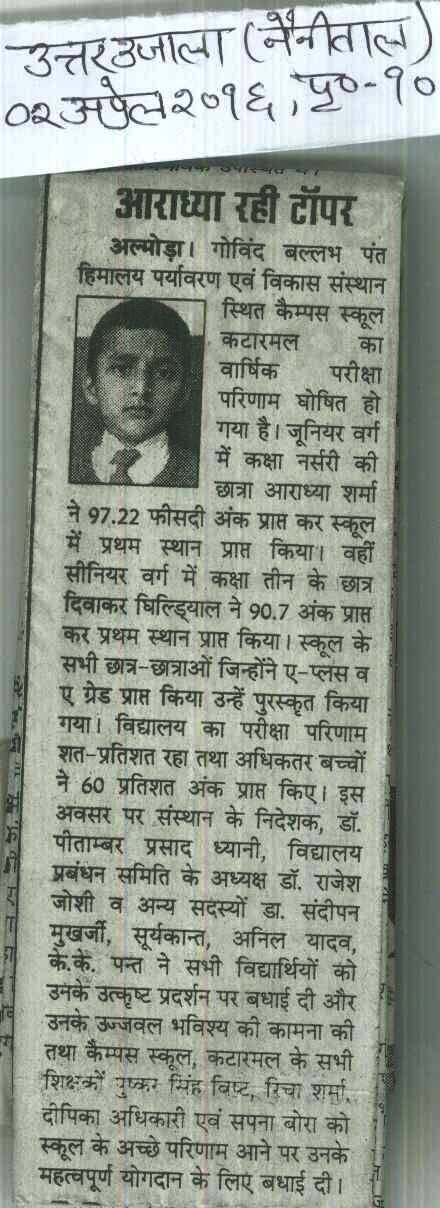 उत्तर उजाला (नैनीताल)
०२ अप्रेल २०१६, पृ०-१०
आराध्या रही टॉपर
अल्मोड़ा। गोविंद बल्लभ पंत
हिमालय पर्यावरण एवं विकास संस्थान
स्थित कैम्पस स्कूल
कटारमल का
वार्षिक परीक्षा
परिणाम घोषित हो
गया है। जूनियर वर्ग
में कक्षा नर्सरी की
छात्रा आराध्या शर्मा
ने 97.22 फीसदी अंक प्राप्त कर स्कूल
में प्रथम स्थान प्राप्त किया। वहीं
सीनियर वर्ग में कक्षा तीन के छात्र
दिवाकर घिल्ड़ियाल ने 90.7 अंक प्राप्त
कर प्रथम स्थान प्राप्त किया। स्कूल के
सभी छात्र-छात्राओं जिन्होंने ए-प्लस व
ए ग्रेड प्राप्त किया उन्हें पुरस्कृत किया
गया। विद्यालय का परीक्षा परिणाम
शत-प्रतिशत रहा तथा अधिकतर बच्चों
ने 60 प्रतिशत अंक प्राप्त किए। इस
अवसर पर संस्थान के निदेशक, डॉ.
पीताम्बर प्रसाद ध्यानी, विद्यालय
प्रबंधन समिति के अध्यक्ष डॉ. राजेश
जोशी व अन्य सदस्यों डा. संदीपन
मुखर्जी, सूर्यकान्त, अनिल यादव,
के.के. पन्त ने सभी विद्यार्थियों को
उनके उत्कृष्ट प्रदर्शन पर बधाई दी और
उनके उज्जवल भविश्य की कामना की
तथा कैम्पस स्कूल, कटारमल के सभी
शिक्षकों पुष्कर सिंह विष्ट, रिचा शर्मा,
दीपिका अधिकारी एवं सपना बोरा को
स्कूल के अच्छे परिणाम आने पर उनके
महत्वपूर्ण योगदान के लिए बधाई दी।